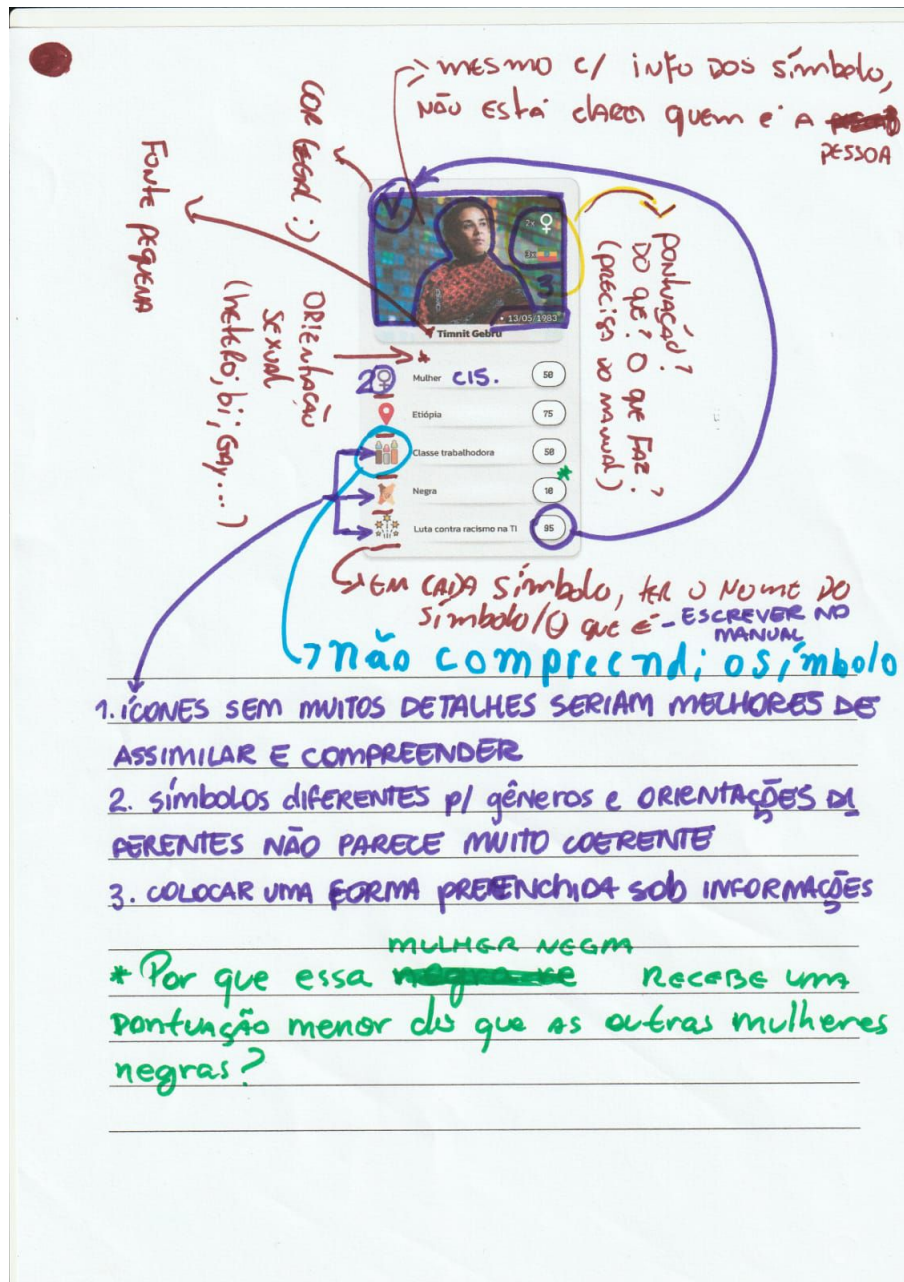 → MESMO C/ INFO DOS SÍMBOLO,
NÃO ESTÁ CLARO QUEM É A
PESSOA
COR LEGAL :)
FONTE PEQUENA
ORIENTAÇÃO
SEXUAL
(hetero, bi, GAY...)
PONTUAÇÃO?
DO QUE? O QUE FAZ?
(PRECISA DO MANUAL)
2x
3x
3
• 13/05/1983
Timnit Gebru
*
2
Mulher CIS. 50
Etiópia 75
Classe trabalhadora 50
Negra 10 *
Luta contra racismo na TI 95
EM CADA SÍMBOLO, TER O NOME DO
SÍMBOLO/O QUE É - ESCREVER NO
MANUAL
não compreendi o símbolo
1. ÍCONES SEM MUITOS DETALHES SERIAM MELHORES DE
ASSIMILAR E COMPREENDER
2. SÍMBOLOS DIFERENTES P/ GÊNEROS E ORIENTAÇÕES DI
FERENTES NÃO PARECE MUITO COERENTE
3. COLOCAR UMA FORMA PREENCHIDA SOB INFORMAÇÕES
MULHER NEGRA
* Por que essa RECEBE UMA
PONTUAÇÃO menor do que AS outras mulheres
negras?